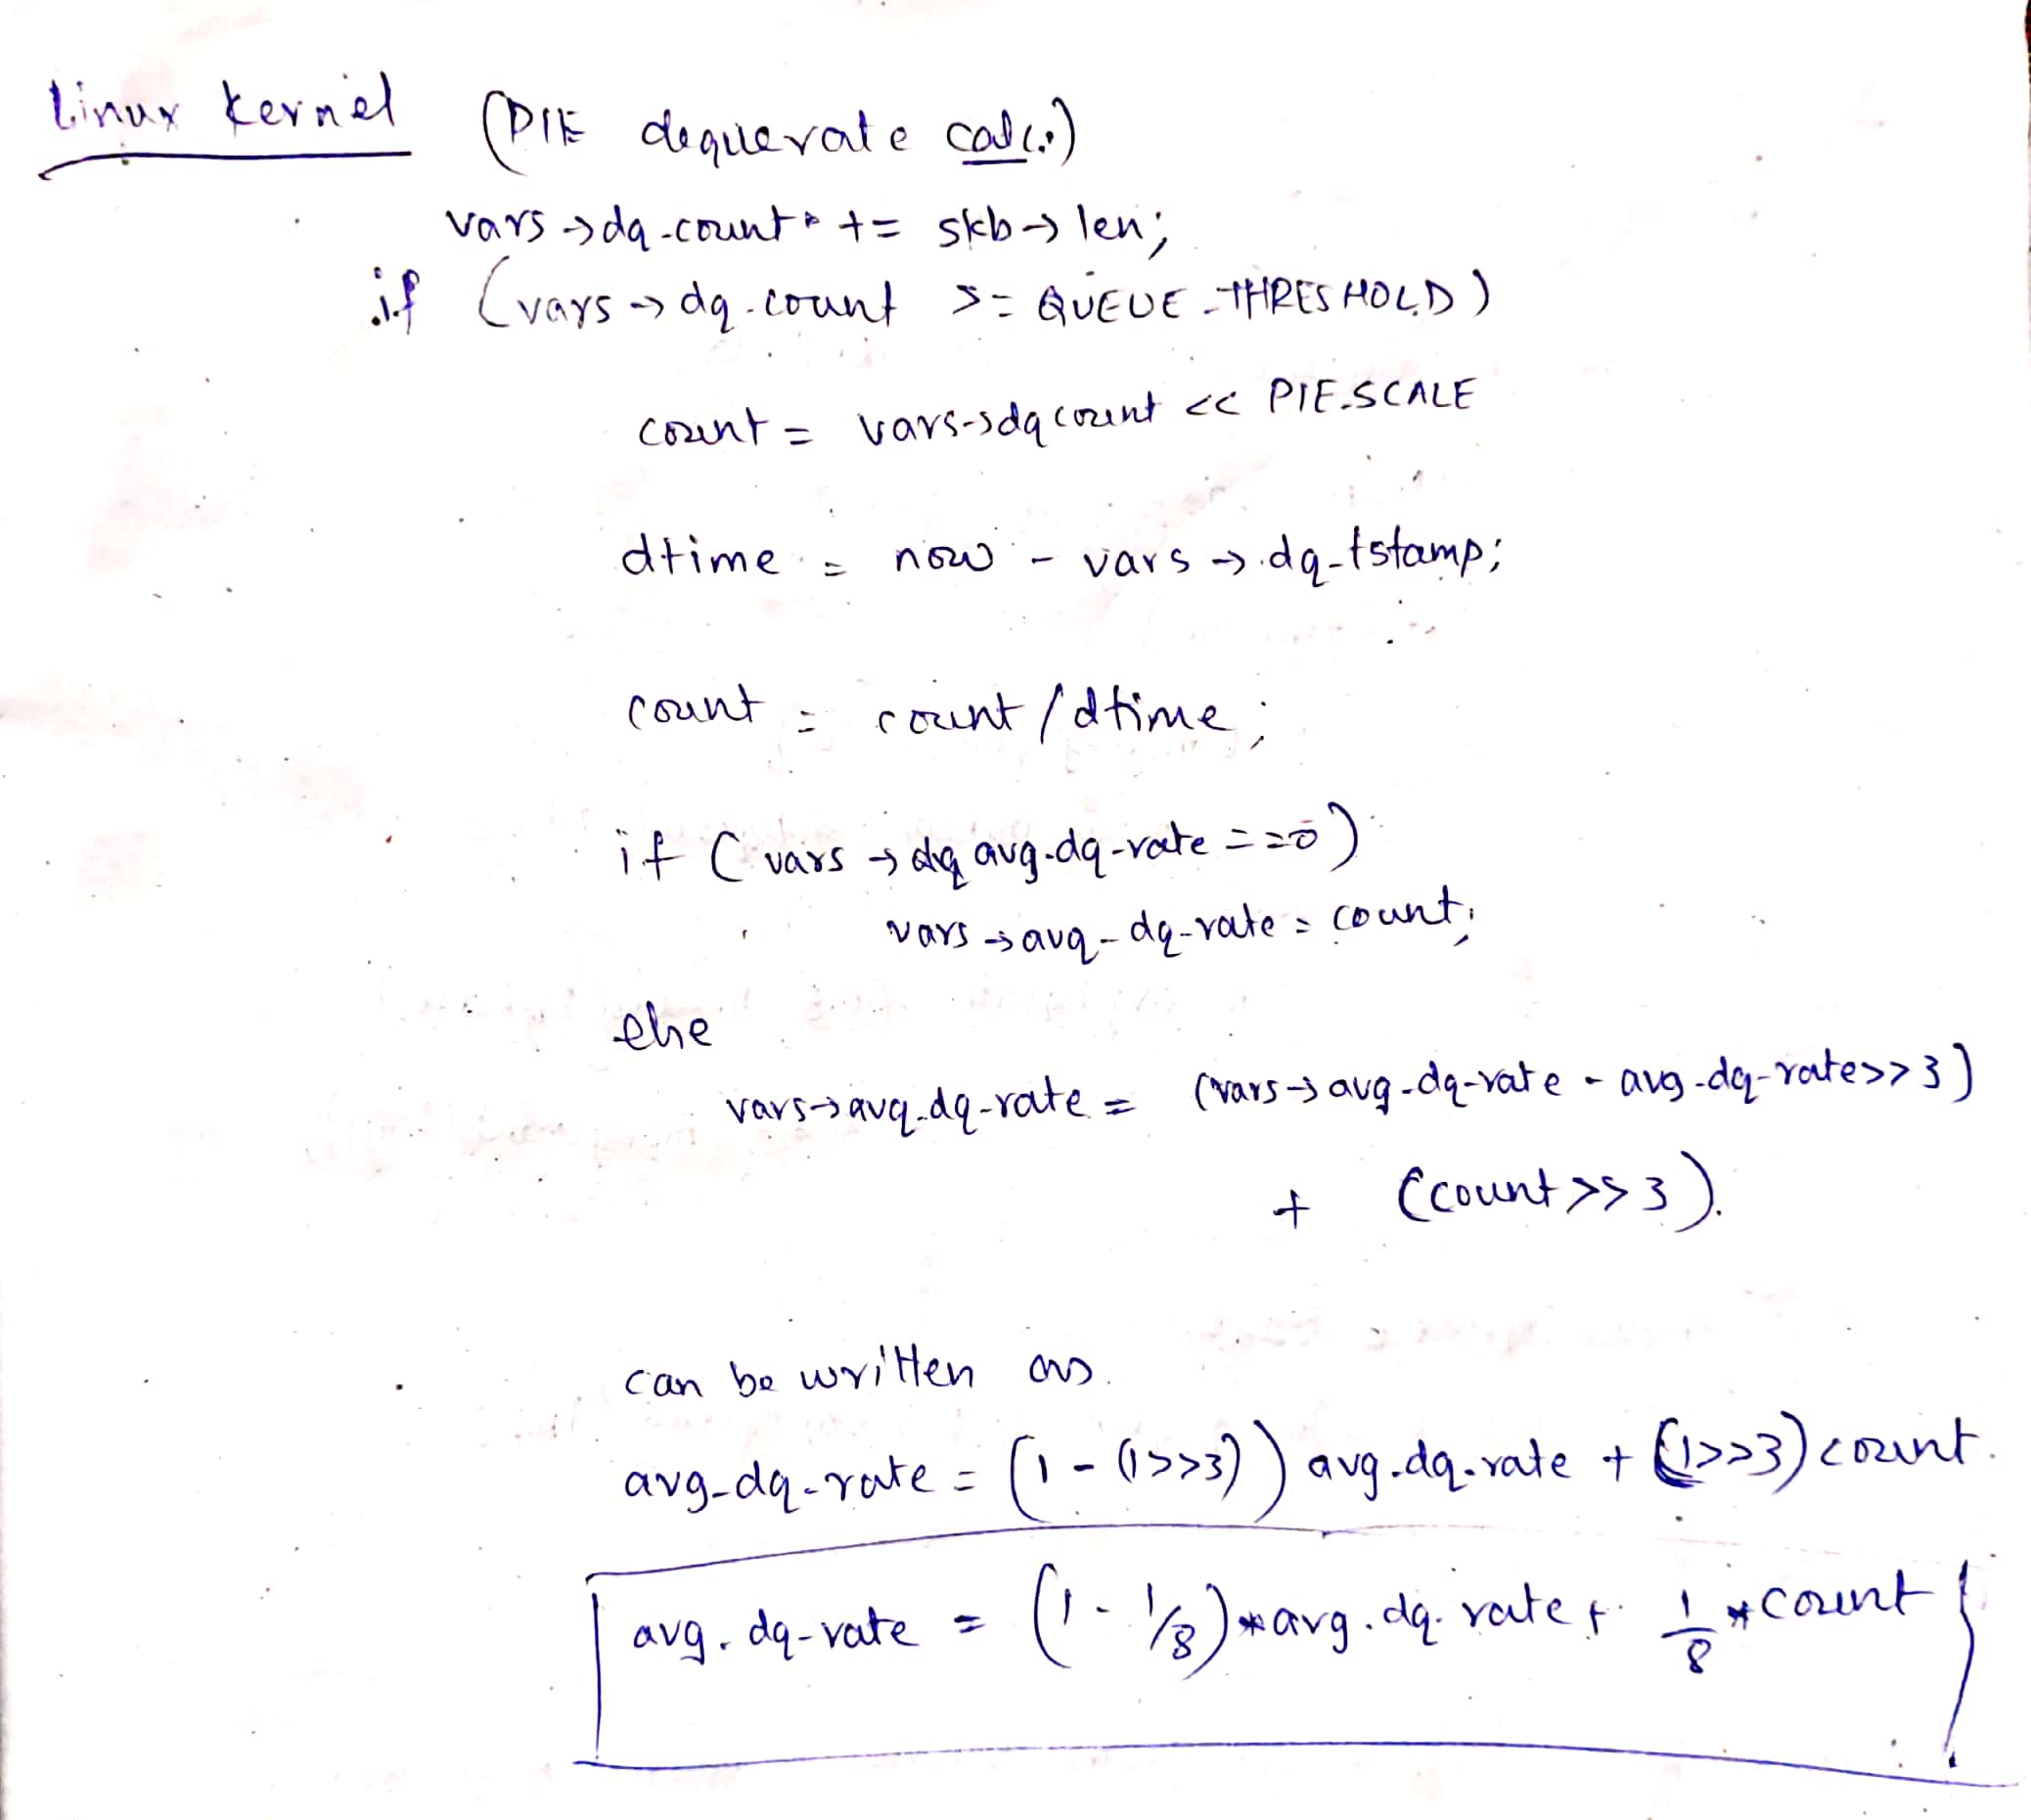 Linux Kernel (PIE dequerate calc.)
vars → dq_count += skb → len;
if (vars → dq_count >= QUEUE_THRESHOLD)
count = vars → dqcount << PIE_SCALE
dtime = now - vars → dq_tstamp;
count = count / dtime;
if (vars → avg_dq_rate == 0)
vars → avg_dq_rate = count;
else
vars → avg_dq_rate = (vars → avg_dq_rate - avg_dq_rate >> 3)
+ (count >> 3).
can be written as.
avg_dq_rate = (1 - (1>>3)) avg_dq_rate + (1>>3) count.
avg_dq_rate = (1 - 1/8) * avg_dq_rate + 1/8 * count